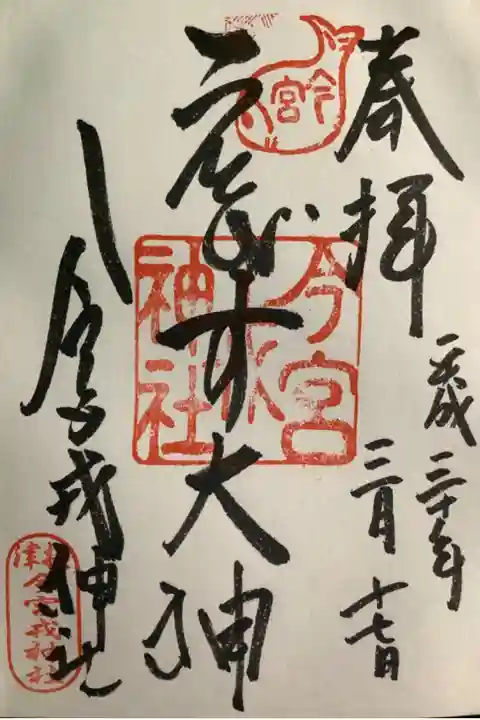 奉拝
平成三十年
三月十七日
今宮
ゑびす大神
今宮
戎
神社
今宮戎神社
摂津
今宮戎神社